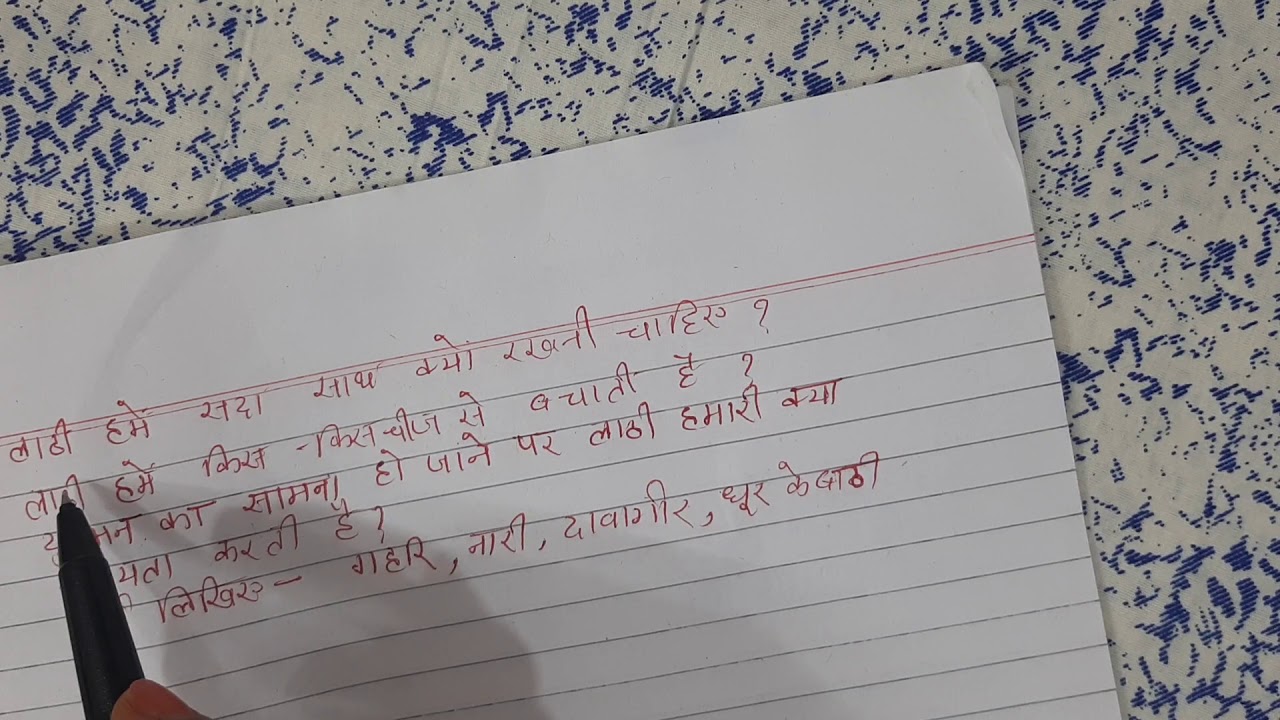 लाठी हमें सदा साथ क्यों रखनी चाहिए ?
लाठी हमें किस - किस चीज से बचाती है ?
का सामना हो जाने पर लाठी हमारी क्या
करती है ?
लिखिए - गहरि, नारी, दावागीर, धूर के बाठी